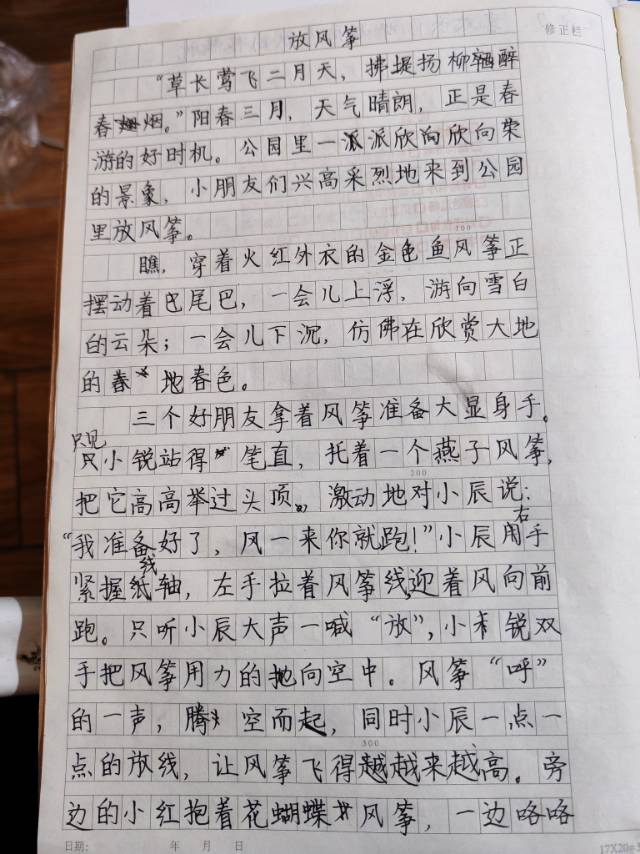 放风筝
修正栏
“草长莺飞二月天，拂堤扬柳醉
春烟。”阳春三月，天气晴朗，正是春
游的好时机。公园里一派派欣向欣向荣
的景象，小朋友们兴高采烈地来到公园
里放风筝。
100
瞧，穿着火红外衣的金色鱼风筝正
摆动着尾巴，一会儿上浮，游向雪白
的云朵；一会儿下沉，仿佛在欣赏大地
的春地春色。
三个好朋友拿着风筝准备大显身手。
只见
只小锐站得笔直，托着一个燕子风筝，
200
把它高高举过头顶，激动地对小辰说：
右
“我准备好了，风一来你就跑！”小辰用手
线
紧握纸轴，左手拉着风筝线，迎着风向前
跑。只听小辰大声一喊“放”，小锐双
手把风筝用力的抛向空中。风筝“呼”
的一声，腾空而起，同时小辰一点一
300
点的放线，让风筝飞得越越来越高。旁
边的小红抱着花蝴蝶风筝，一边咯咯
日期： 年 月 日
17X20=3